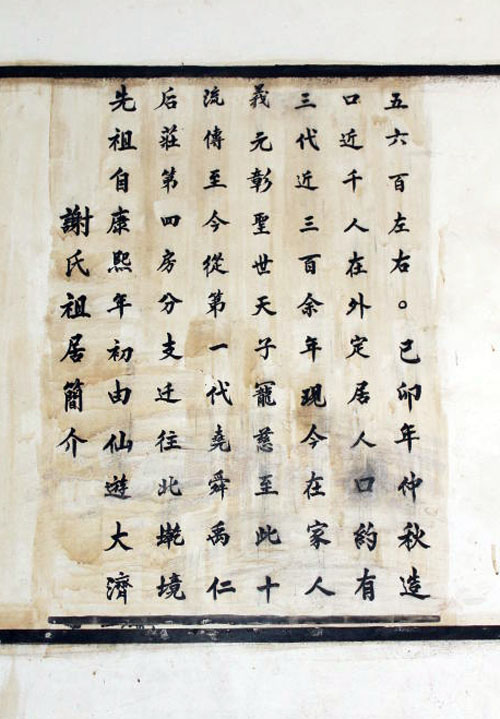 謝氏祖居簡介
先祖自康熙年初由仙遊大濟
后莊第四房分支迁往此墘境
流傳至今從第一代堯舜禹仁
義元彰聖世天子寵慈至此十
三代近三百余年現今在家人
口近千人在外定居人口約有
五六百左右。己卯年仲秋造